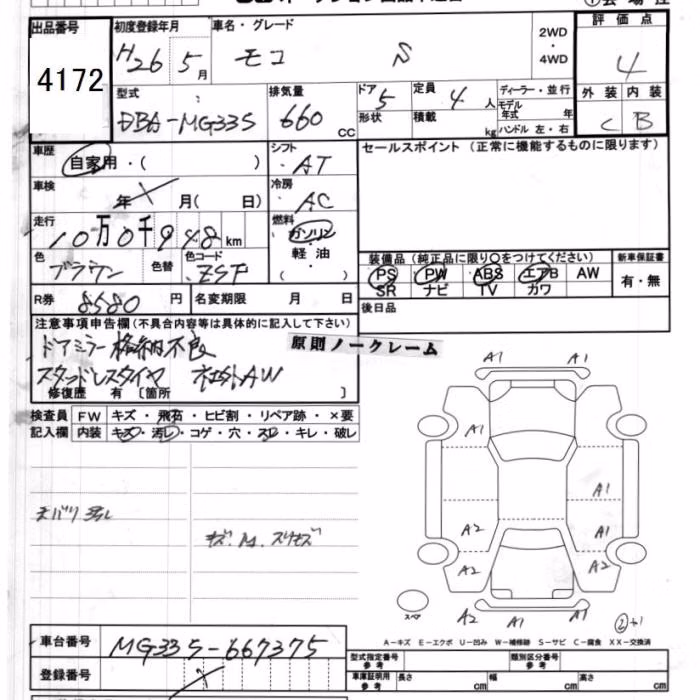 出品番号
4172
初度登録年月
H26 5月
車名・グレード
モコ S
2WD
・
4WD
評価点
4
外装 内装
C B
型式
DBA-MG33S
排気量
660 CC
ドア
5
定員
4 人
形状
積載
kg
ディーラー・並行
モデル年式 年
ハンドル 左・右
車歴
自家用・( )
シフト
AT
セールスポイント (正常に機能するものに限ります)
車検
年 月( 日)
冷房
AC
走行
10万0千948km
燃料
ガソリン
軽油
( )
色
ブラウン
色替
色コード
装備品 (純正品に限り〇をつけてください)
PS PW ABS エアB AW
SR ナビ TV カワ
新車保証書
有・無
R券
8580 円
名変期限 月 日
後日品
注意事項申告欄 (不具合内容等は具体的に記入して下さい)
ドアミラー格納不良
スタッドレスタイヤ 社外AW
修復歴 有 〔箇所 〕
原則ノークレーム
検査員
記入欄
FW キズ・飛石・ヒビ割・リペア跡・×要
内装 キズ・汚レ・コゲ・穴・スレ・キレ・破レ
A1 A1
A1
A1
A2 A1
A2 A2
A2 A1 A1
スペア
A-キズ E-エクボ U-凹み W-補修跡 S-サビ C-腐食 XX-交換済
車台番号
MG33S-667375
登録番号
型式指定番号
参考
類別区分番号
参考
車庫証明用
参考
長さ cm
幅 cm
高さ cm